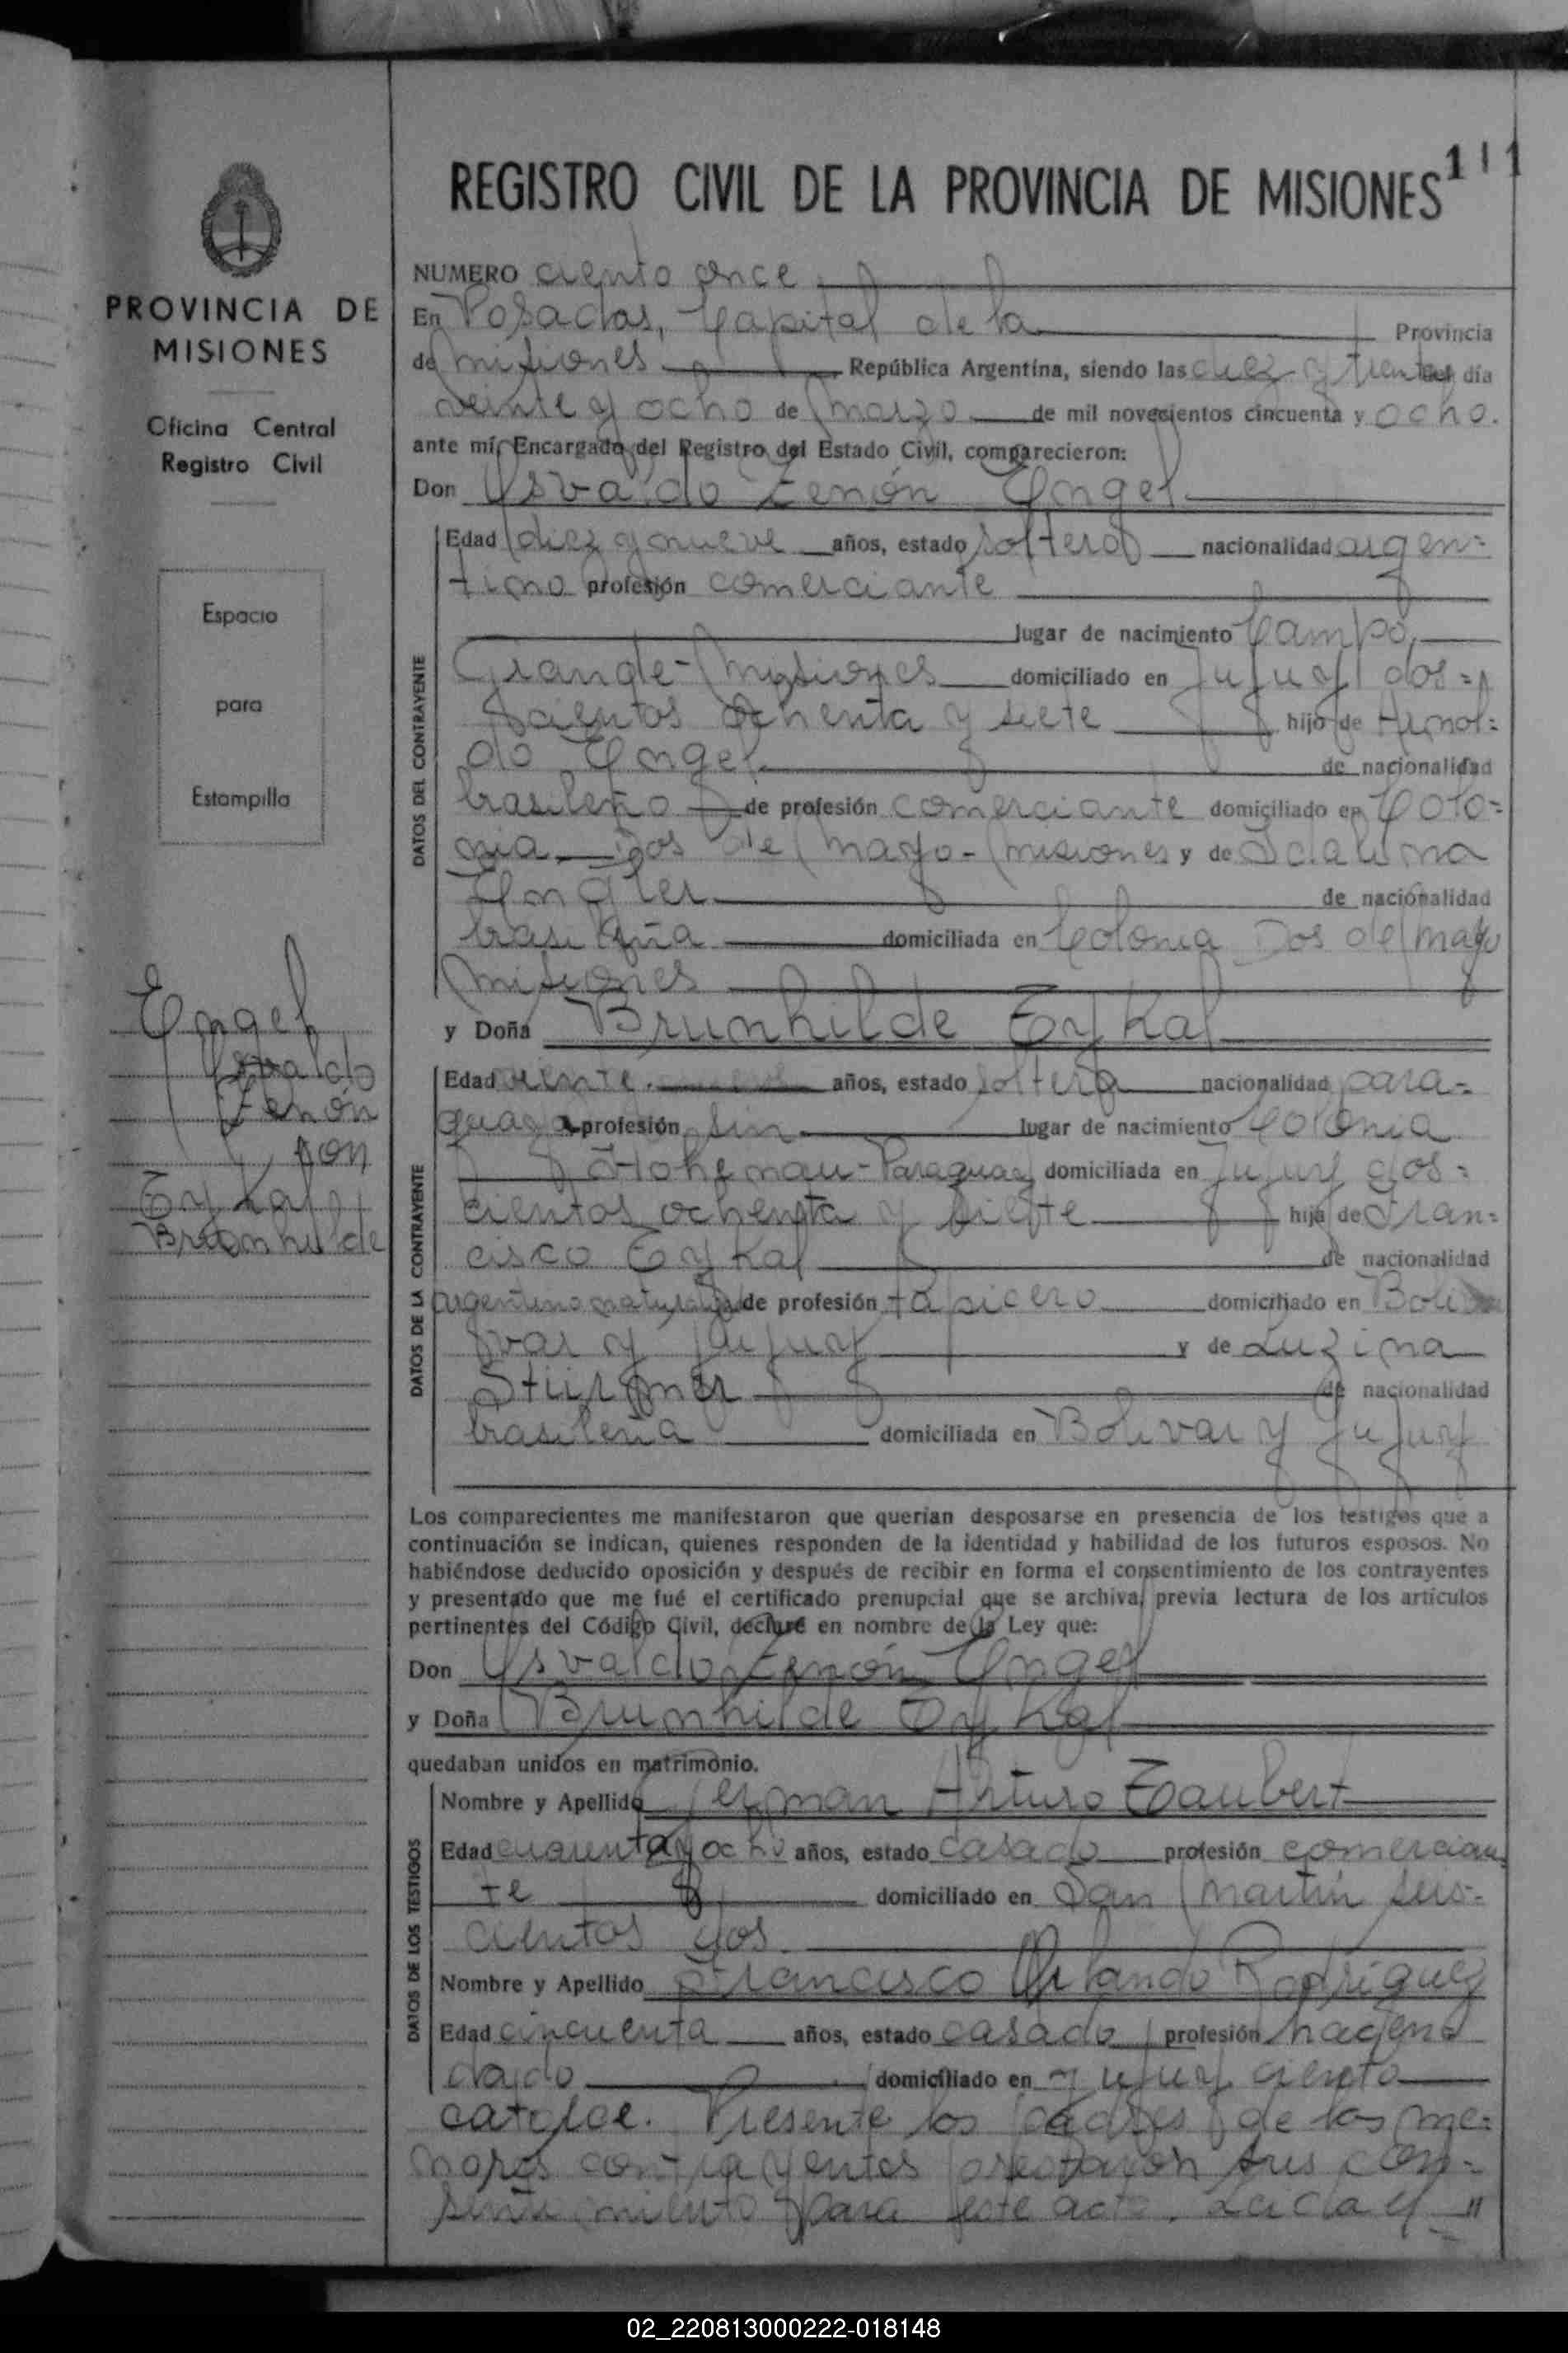 111
REGISTRO CIVIL DE LA PROVINCIA DE MISIONES
PROVINCIA DE
MISIONES
Oficina Central
Registro Civil
Espacio
para
Estampilla
Engel
Osvaldo
Zenón
con
Eykal
Brunhilde
NUMERO ciento once
En Posadas, Capital de la Provincia
de Misiones República Argentina, siendo las diez y treinta del día
veinte y ocho de marzo de mil novecientos cincuenta y ocho.
ante mí, Encargado del Registro del Estado Civil, comparecieron:
Don Osvaldo Zenón Engel
DATOS DEL CONTRAYENTE
Edad diez y nueve años, estado soltero nacionalidad argen=
tino profesión comerciante
lugar de nacimiento Campo
Grande - Misiones domiciliado en Jujuy dos=
cientos ochenta y siete hijo de Arnol=
do Engel de nacionalidad
brasileño de profesión comerciante domiciliado en Colo=
nia Dos de Mayo - Misiones y de
Engler de nacionalidad
brasileña domiciliada en Colonia Dos de Mayo
Misiones
y Doña Brunhilde Eykal
DATOS DE LA CONTRAYENTE
Edad veinte años, estado soltera nacionalidad para=
guaya profesión sin lugar de nacimiento Colonia
Hohenau - Paraguay domiciliada en Jujuy dos=
cientos ochenta y siete hija de Fran=
cisco Eykal de nacionalidad
argentino de profesión tapicero domiciliado en Boli
var y Jujuy y de Luzina
Stürmer de nacionalidad
brasileña domiciliada en Bolivar y Jujuy
Los comparecientes me manifestaron que querían desposarse en presencia de los testigos que a
continuación se indican, quienes responden de la identidad y habilidad de los futuros esposos. No
habiéndose deducido oposición y después de recibir en forma el consentimiento de los contrayentes
y presentado que me fué el certificado prenupcial que se archiva, previa lectura de los artículos
pertinentes del Código Civil, declaré en nombre de la Ley que:
Don Osvaldo Zenón Engel
y Doña Brunhilde Eykal
quedaban unidos en matrimonio.
DATOS DE LOS TESTIGOS
Nombre y Apellido German Arturo Taubert
Edad cuarenta y ocho años, estado casado profesión comercian
te domiciliado en San Martín seis=
cientos dos.
Nombre y Apellido Francisco Orlando Rodríguez
Edad cincuenta años, estado casado profesión hacen
dado domiciliado en Jujuy ciento
catorce. Presente los padres de los me=
nores contrayentes prestaron sus con=
sentimiento para este acto. Leida el "
02_220813000222-018148